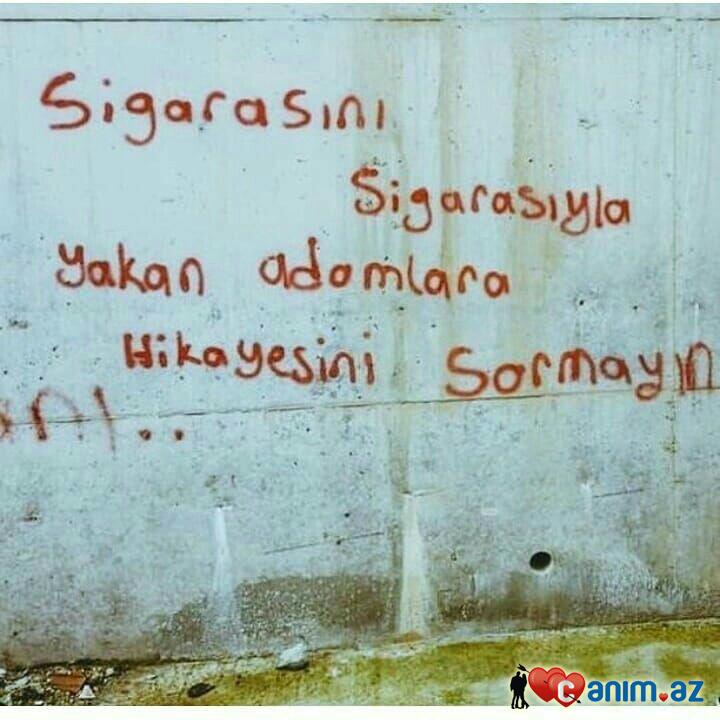 Sigarasını
Sigarasıyla
yakan adamlara
Hikayesini Sormayın
anım.az